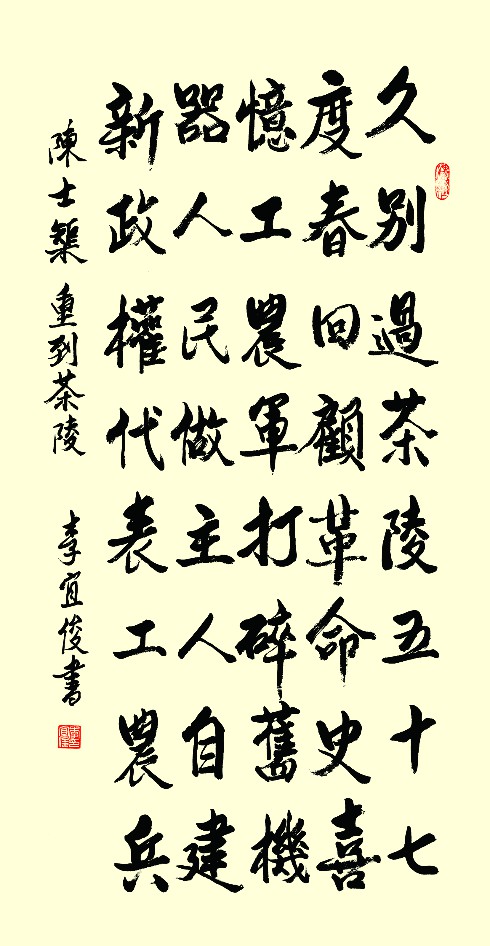 久别過茶陵五十七
度春回顧革命史喜
憶工農軍打碎舊機
器人民做主人自建
新政權代表工農兵
陳士榘 重到茶陵 李宜俊書